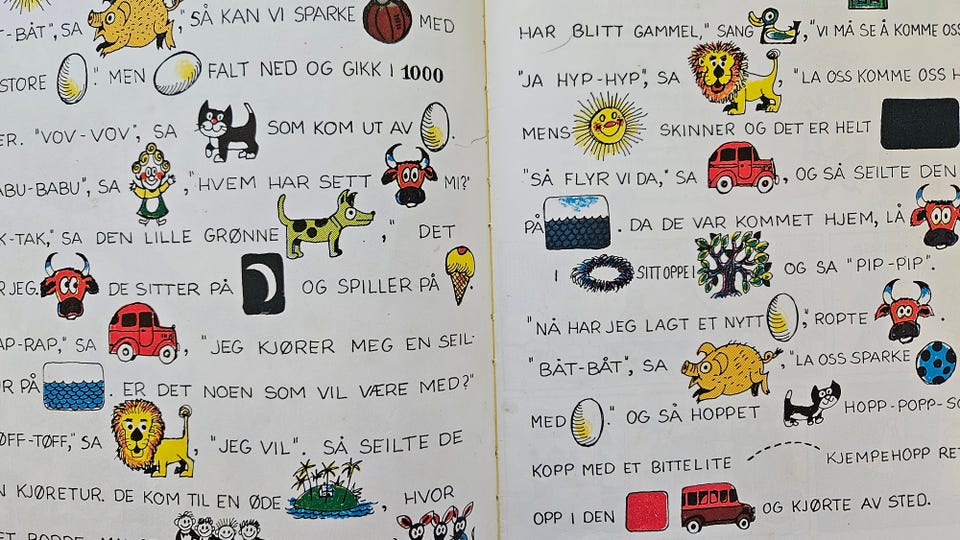 -BÅT", SA , "SÅ KAN VI SPARKE MED
STORE ." MEN FALT NED OG GIKK I 1000
ER. "VOV-VOV", SA SOM KOM UT AV .
ABU-BABU", SA , "HVEM HAR SETT MI?"
K-TAK," SA DEN LILLE GRØNNE ," DET
R JEG. DE SITTER PÅ OG SPILLER PÅ .
AP-RAP," SA , "JEG KJØRER MEG EN SEIL-
UR PÅ . ER DET NOEN SOM VIL VÆRE MED?"
ØFF-TØFF," SA , "JEG VIL". SÅ SEILTE DE
N KJØRETUR. DE KOM TIL EN ØDE , HVOR
HAR BLITT GAMMEL," SANG , "VI MÅ SE Å KOMME OSS
"JA HYP-HYP", SA , "LA OSS KOMME OSS H
MENS SKINNER OG DET ER HELT
"SÅ FLYR VI DA," SA , OG SÅ SEILTE DEN
PÅ . DA DE VAR KOMMET HJEM, LÅ
I SITT OPPE I OG SA "PIP-PIP".
"NÅ HAR JEG LAGT ET NYTT ," ROPTE .
"BÅT-BÅT", SA , "LA OSS SPARKE
MED ." OG SÅ HOPPET HOPP-POPP-SO
KOPP MED ET BITTELITE KJEMPEHOPP RET
OPP I DEN OG KJØRTE AV STED.